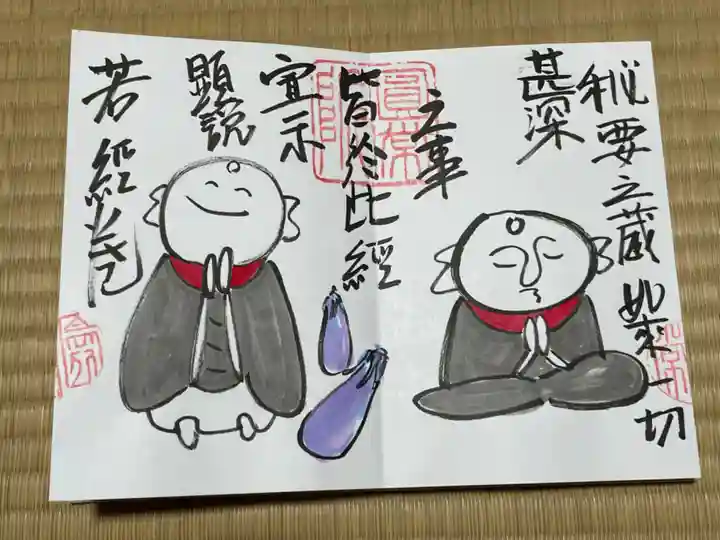 秘要之蔵如来一切
甚深
之事
皆於此經
宣示
顯説
若經巻